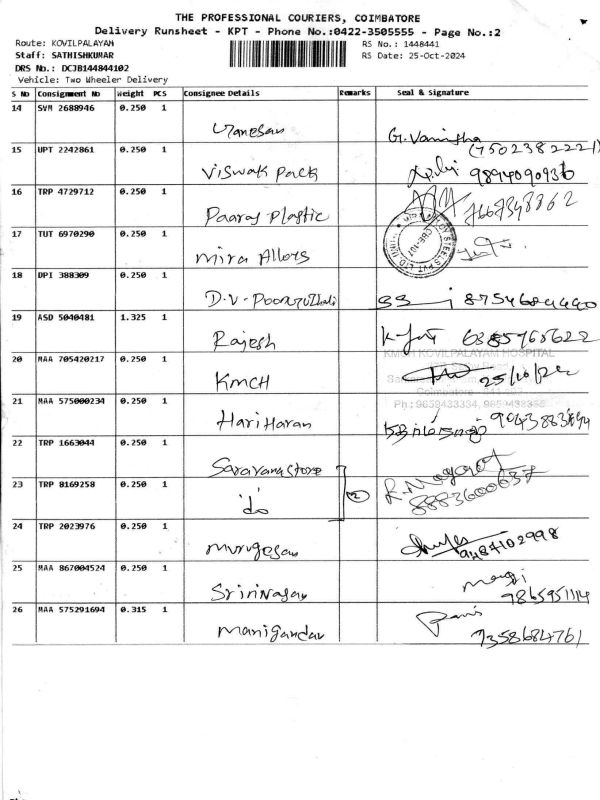 THE PROFESSIONAL COURIERS, COIMBATORE
Delivery Runsheet - KPT - Phone No.:0422-3505555 - Page No.:2
Route: KOVILPALAYAM RS No.: 1448441
Staff: SATHISHKUMAR RS Date: 25-Oct-2024
DRS No.: DCJB144844102
Vehicle: Two Wheeler Delivery
S No Consignment No Weight PCS Consignee Details Remarks Seal & Signature
14 SVM 2688946 0.250 1
Ganesan G. Vanitha
(7502382221)
15 UPT 2242861 0.250 1
Viswak Pack 9894090936
16 TRP 4729712 0.250 1
Paaraj Plastic 7667348362
17 TUT 6970290 0.250 1
Mira Alloys
18 DPI 388309 0.250 1
D.V. 8754684440
19 ASD 5040481 1.325 1
Rajesh 6385765622
20 MAA 705420217 0.250 1
KMCH KOVILPALAYAM HOSPITAL
KMCH 25/10/24
21 MAA 575000234 0.250 1
Ph: 9659433334,
Hari Haran
22 TRP 1663044 0.250 1
Saravana Store
23 TRP 8169258 0.250 1
do 2 8883600637
24 TRP 2023976 0.250 1
Murugesan 9487102998
25 MAA 867004524 0.250 1
Srinivasan 9865951114
26 MAA 575291694 0.315 1
Manigandan 7358684761